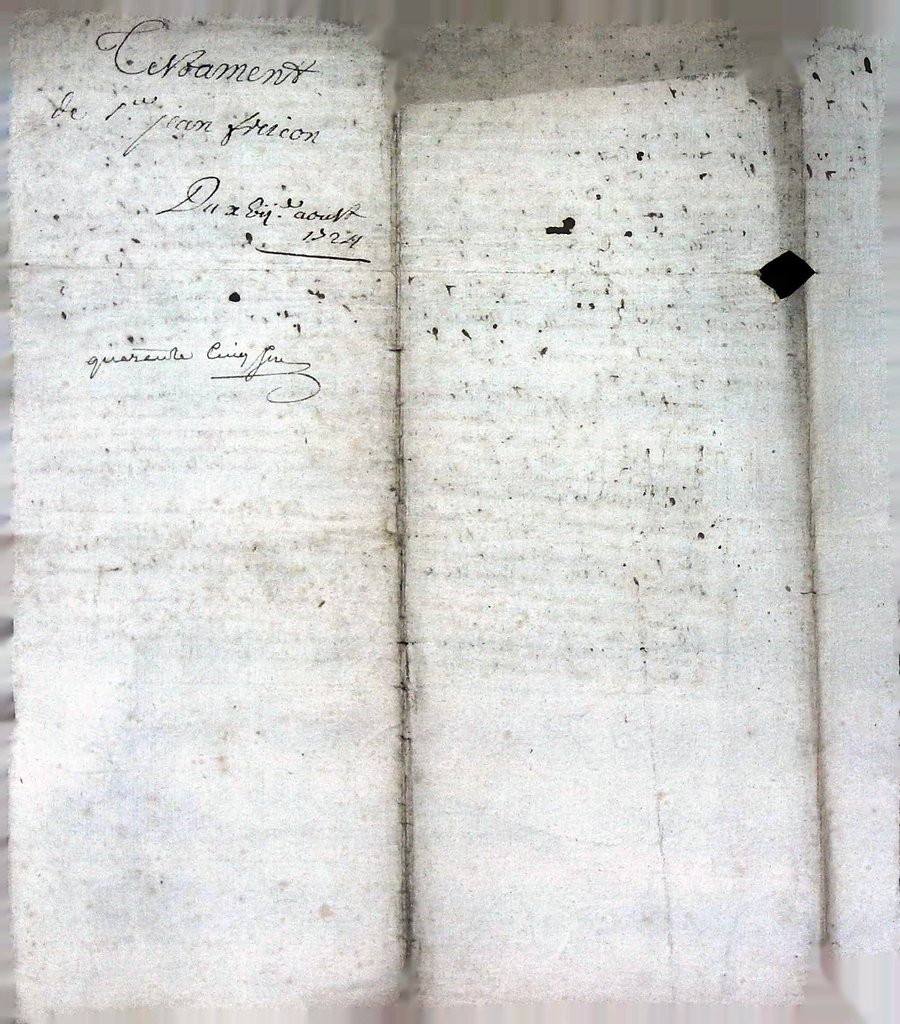 Testament
de Sr jean fricon
Du xviij.e aoust
1724
quarante Cinq